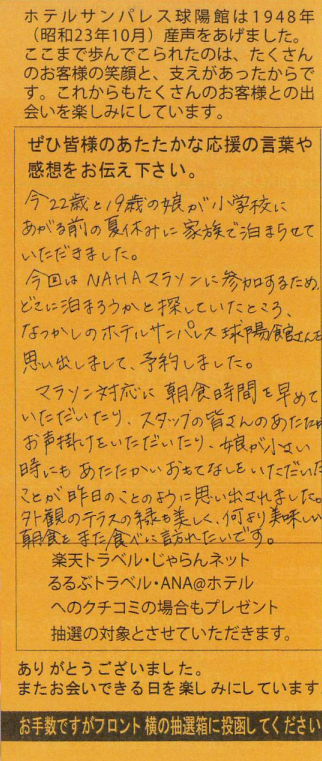 ホテルサンパレス球陽館は1948年
（昭和23年10月）産声をあげました。
ここまで歩んでこられたのは、たくさん
のお客様の笑顔と、支えがあったからで
す。これからもたくさんのお客様との出
会いを楽しみにしています。
ぜひ皆様のあたたかな応援の言葉や
感想をお伝え下さい。
今22歳と19歳の娘が小学校に
あがる前の夏休みに家族で泊まらせて
いただきました。
今回はNAHAマラソンに参加するため、
どこに泊まろうかと探していたところ、
なつかしのホテルサンパレス球陽館さんを
思い出しまして、予約しました。
マラソン対応に朝食時間を早めて
いただいたり、スタッフの皆さんのあたたか
お声掛けをいただいたり、娘が小さい
時にもあたたかいおもてなしをいただいた
ことが昨日のことのように思い出されました。
外観のテラスの緑も美しく、何より美味しい
朝食をまた食べに訪れたいです。
楽天トラベル・じゃらんネット
るるぶトラベル・ANA@ホテル
へのクチコミの場合もプレゼント
抽選の対象とさせていただきます。
ありがとうございました。
またお会いできる日を楽しみにしています
お手数ですがフロント横の抽選箱に投函してください